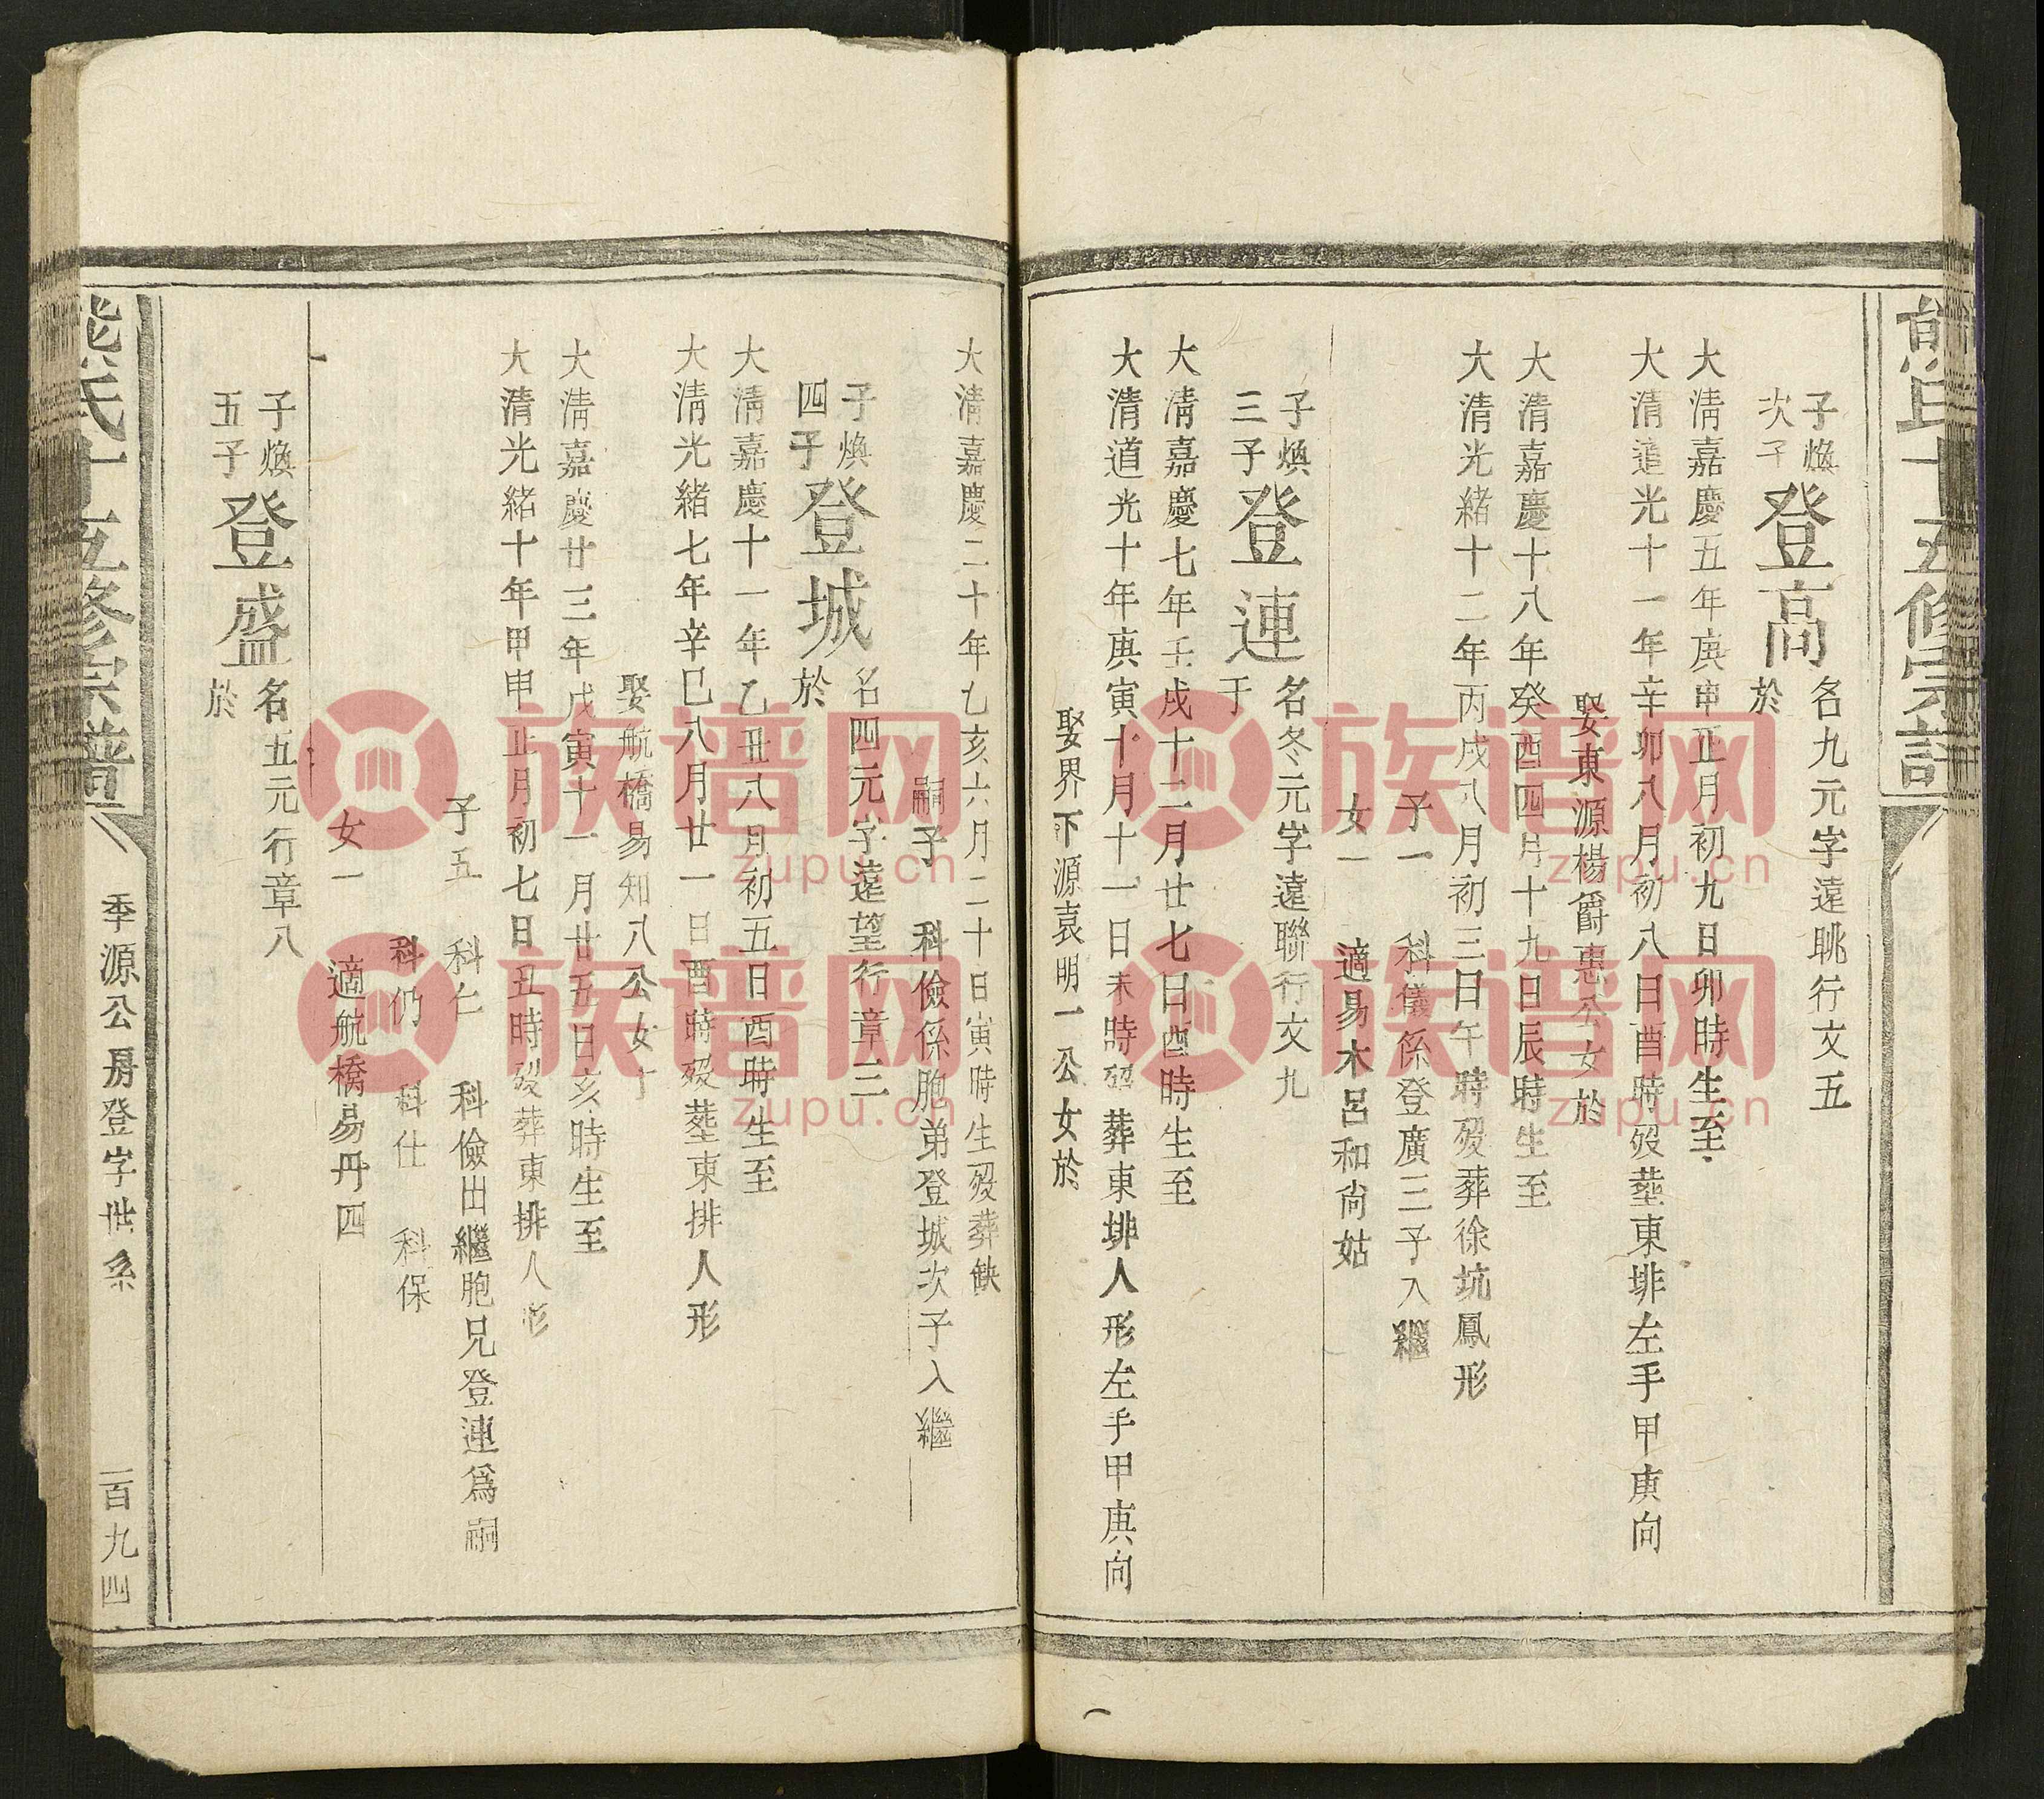 熊氏十五修宗譜
子煥
次子
登高
名九元字遠眺行文五
於
大清嘉慶五年庚申正月初九日卯時生至
大清道光十一年辛卯八月初八日酉時歿塟東排左手甲庚向
娶東源楊爵惠公女於
大清嘉慶十八年癸酉四月十九日辰時生至
大清光緒十二年丙戌八月初三日午時歿葬徐坑鳳形
子一 科儀係登廣三子入繼
女一 適易木呂和尚姑
子煥
三子
登連
名冬元字遠聯行文九
于
大清嘉慶七年壬戌十二月廿七日酉時生至
大清道光十年庚寅十月十一日未時歿葬東排人形左手甲庚向
娶界下源袁明一公女於
大清嘉慶二十年乙亥六月二十日寅時生歿葬缺
嗣子 科儉係胞弟登城次子入繼
子煥
四子
登城
名四元字遠望行章三
於
大清嘉慶十一年乙丑八月初五日酉時生至
大清光緒七年辛巳八月廿一日酉時歿塟東排人形
娶航橋易知八公女于
大清嘉慶廿三年戊寅十一月廿五日亥時生至
大清光緒十年甲申正月初七日丑時歿葬東排人形
子五 科仁 科儉出繼胞兄登連爲嗣
科仍 科仕 科保
女一 適航橋易丹四
子煥
五子
登盛
名五元行章八
於
熊氏十五修宗譜
季源公房登字世系
一百九四
族谱网
zupu.cn
族谱网
zupu.cn
族谱网
zupu.cn
族谱网
zupu.cn